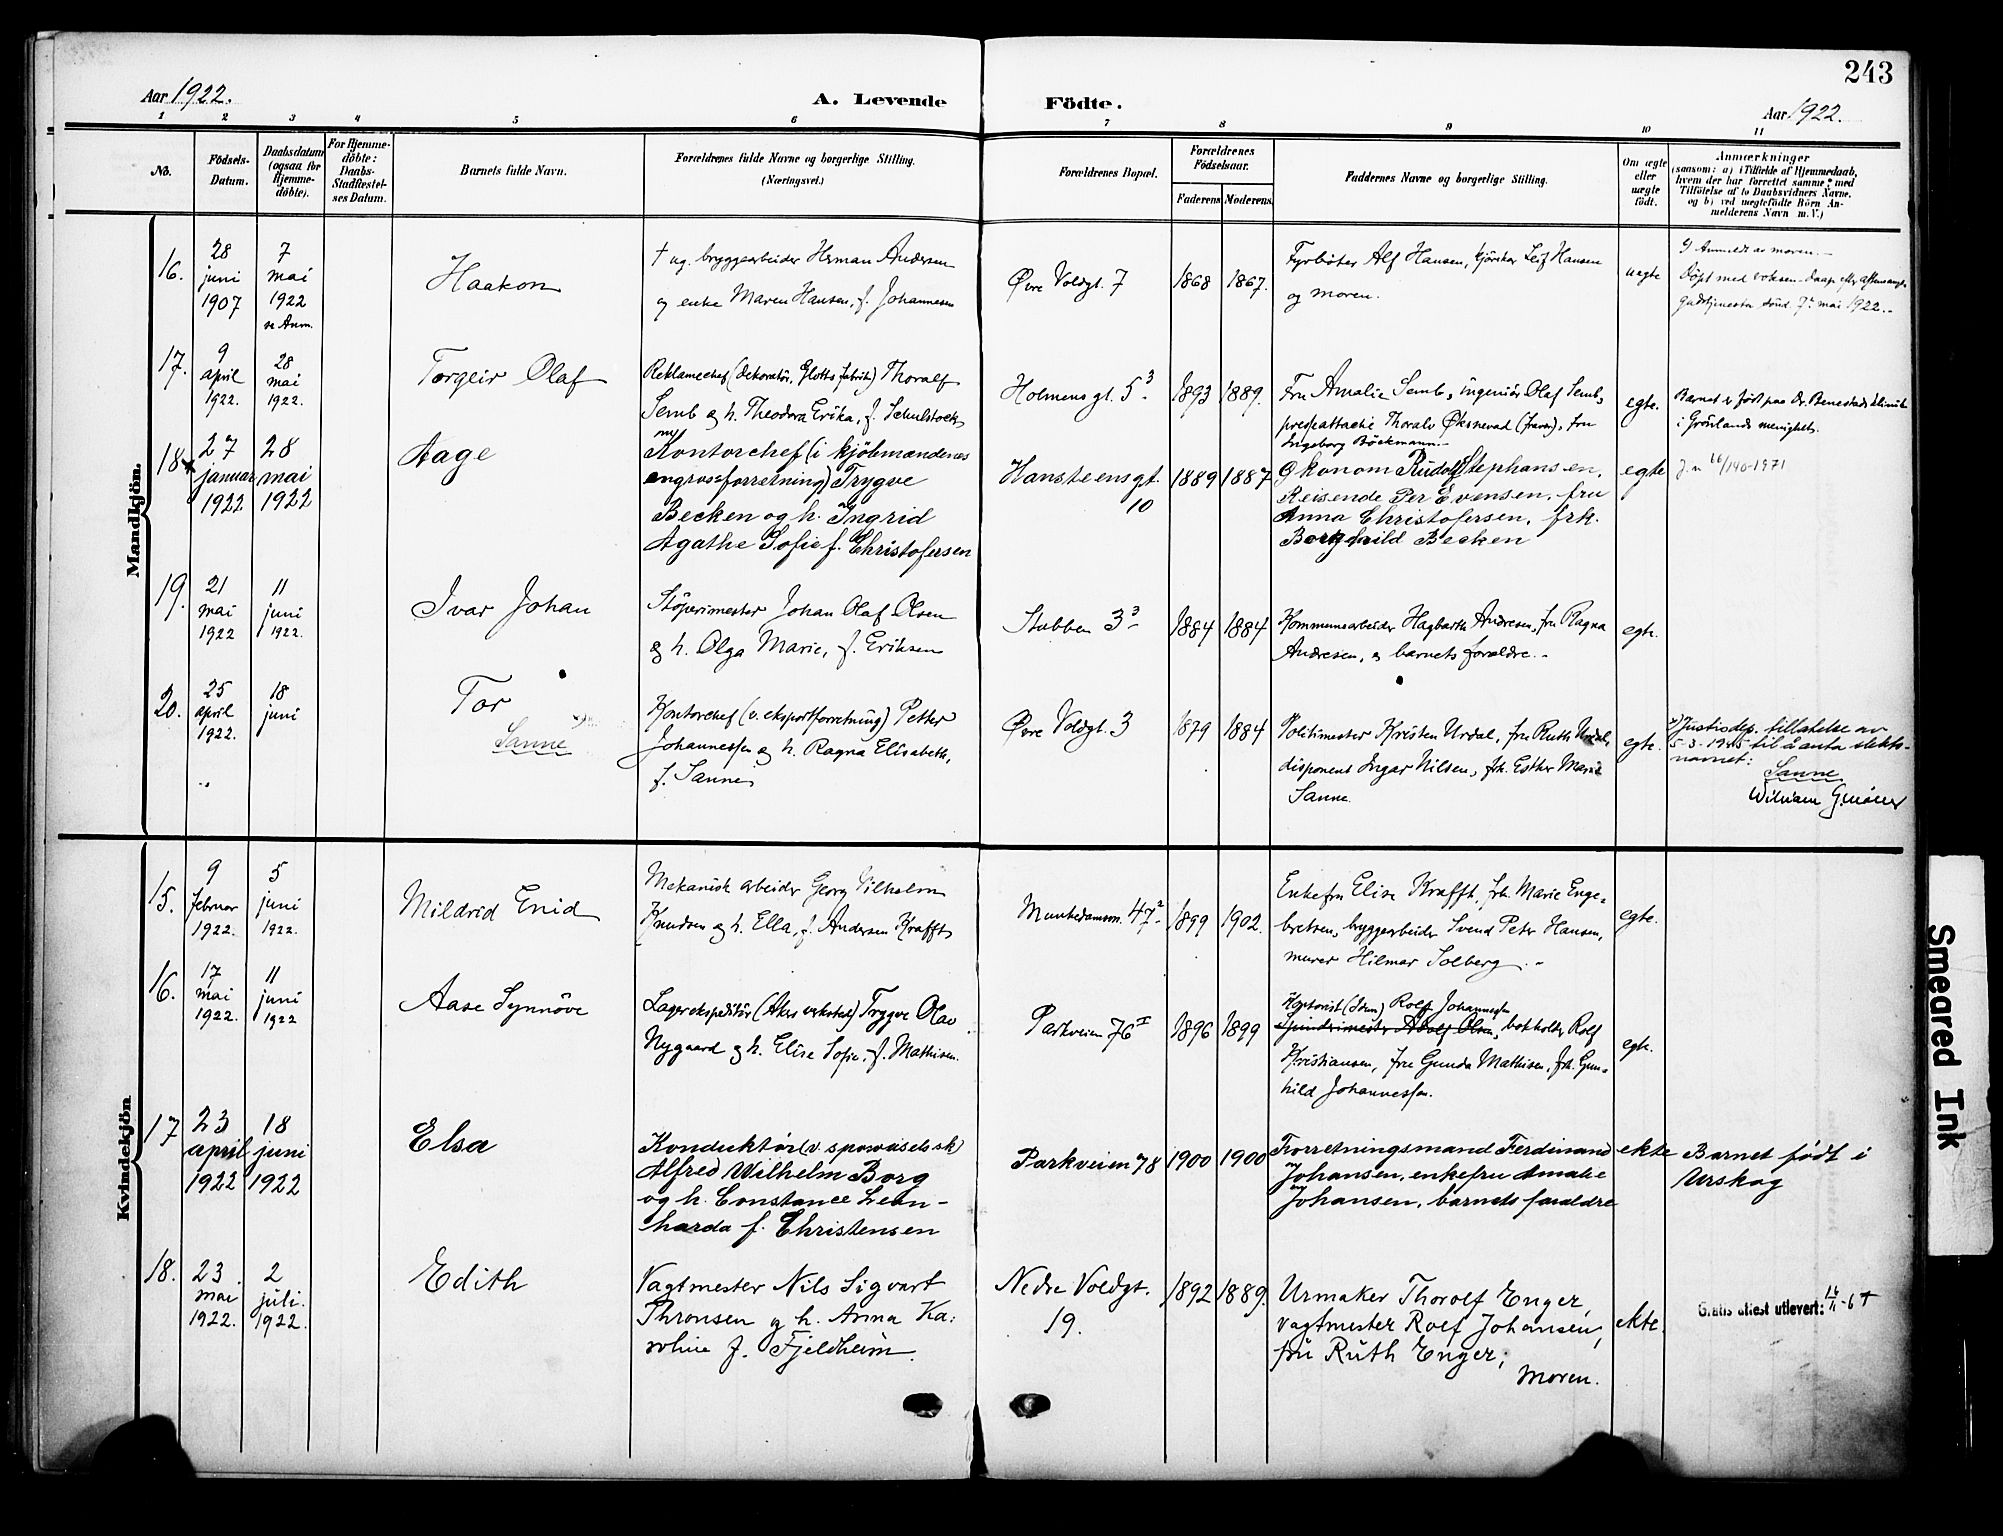 243
Aar 1922.
A. Levende Födte.
Aar 1922.
1 2 3 4 5 6 7 8 9 10 11
No.
Födsels-Datum.
Daabsdatum (ogsaa for Hjemme-döbte).
For Hjemme-döbte: Daabs-Stadfæstel-ses Datum.
Barnets fulde Navn.
Forældrenes fulde Navne og borgerlige Stilling.
(Næringsvei.)
Forældrenes Bopæl.
Forældrenes Födselsaar.
Faderens Moderens
Faddernes Navne og borgerlige Stilling.
Om ægte eller uægte födt.
Anmærkninger
(saasom: a) i Tilfælde af Hjemmedaab,
hvem der har forrettet samme med
Tilföielse af to Daabsvidners Navne,
og b) ved uægtefödte Börn An-
melderens Navn m. V.)
Mandkjön.
16.
28 juni 1907
7 mai 1922 se Anm.
Haakon
† ug. bryggearbeider Herman Andersen
og enke Maren Hansen, f. Johannesen
Øvre Voldgt. 7
1868 1867.
Fyrböter Alf Hansen, kjörsker Leif Hansen
og moren.
uegte
Anmeldt av moren.
Döpt med voksen-daap efter aftensangs-
gudstjenesten sönd. 7. mai 1922.
17.
9 april 1922.
28 mai 1922.
Torgeir Olaf
Reklamechef (dekoratör, Glotts fabrik) Thoralf
Semb og h. Theodora Erika, f. Schulstock
Holmensgt. 5³
1893 1889.
Fru Amalie Semb, ingeniör Olaf Semb,
presseattaché Thoralv Øksnevad (fravær), fru
Ingeborg Böckmann.
egte.
Barnet er født paa Dr. Benestads klinik
i Grönlands menighet.
18
27 januar 1922
28 mai 1922
Aage
Kontorchef (i kjöbmændenes
engrosforretning) Trygve
Becken og h. Ingrid
Agathe Sofie f. Christofersen
Hansteensgt. 10
1889 1887
Økonom Rudolf Stephansen,
Reisende Per Evensen, fru
Anna Christofersen, frk.
Borghild Becken
egte
J.n 16/140-1971
19.
21 mai 1922
11 juni 1922.
Ivar Johan
Stöperimester Johan Olaf Olsen
og h. Olga Marie, f. Eriksen
Stubben 3³
1884 1884
Kommunearbeider Hagbarth Andresen, fru Ragna
Andresen, og barnets forældre.
egte.
20.
25 april 1922.
18 juni
Tor
Sanne
Kontorchef (v. eksportforretning) Petter
Johannessen og h. Ragna Elisabeth,
f. Sanne
Øvre Voldgt. 3
1879 1884
Politimester Kristen Urdal, fru Ruth Urdal,
disponent Ingar Nilsen, frk. Esther Marie
Sanne.
egte.
Justisdep. tillatelse av
5-3-1945 til å anta slekts-
navnet:
Sanne
Kvindekjön
15.
9 februar 1922.
5 juni 1922.
Mildrid Enid
Mekanisk arbeider Georg Vilhelm
Knudsen og h. Ella, f. Andersen Krafft
Munkedamsv. 47²
1899 1902.
Enkefru Elise Krafft, frk. Marie Enge-
bretsen, bryggearbeider Svend Peter Hansen,
murer Hilmar Solberg.
egte.
16.
17 mai 1922.
11 juni 1922
Aase Synnöve
Lagerekspeditör (Akers verksted) Trygve Olav
Nygaard og h. Elise Sofie, f. Mathisen.
Parkveien 76 I
1896 1899
Rolf Johannessen
Adolf Olsen, Rolf
Kristiansen, fru Gunda Mathisen, frk. Gun-
hild Johannessen.
egte.
17
23 april 1922
18 juni 1922
Elsa
Konduktör (v. sporveisselsk)
Alfred Wilhelm Borg
og h. Constance Leon-
harda f. Christensen
Parkveien 78
1900 1900
Forretningsmand Ferdinand
Johansen, enkefru Amalie
Johansen, barnets foraldre
ekte
Barnet født i
Urskog
18.
23 mai 1922.
2 juli. 1922.
Edith
Vagtmester Nils Sigvart
Thronsen og h. Anna Ka-
roline f. Fjeldheim.
Nedre Voldgt. 19.
1892 1889.
Urmaker Thorolf Enger,
vagtmester Rolf Johansen,
fru Ruth Enger,
Moren.
ekte.
Gratis attest utlevert:
Smeared Ink